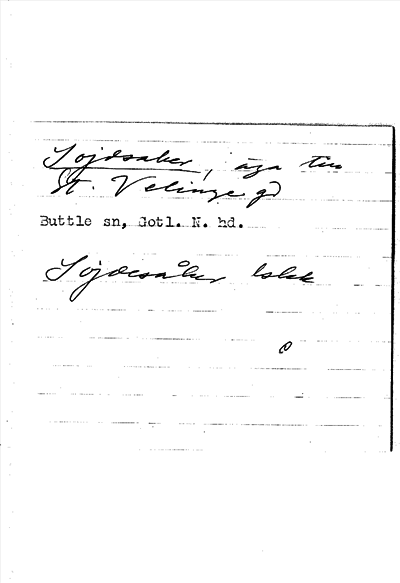 Sojdsaker, äga till
St. Velinge gd
Buttle sn, Gotl. N. hd.
Sojdesåker lskk